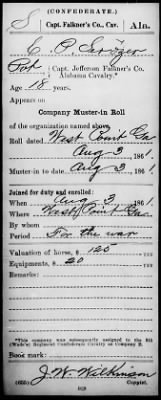 (CONFEDERATE.)
S Capt. Falkner's Co., Cav. Ala.
C. P.
Pvt, Capt. Jefferson Falkner's Co.,
Alabama Cavalry.*
Age 18 years.
Appears on
Company Muster-in Roll
of the organization named above,
Roll dated West Point Ga
Aug 3, 1861.
Muster-in to date Aug 3, 1861.
Joined for duty and enrolled:
When Aug 3, 1861.
Where West Point Ga.
By whom
Period For the war
Valuation of horse, $ 125
Equipments, $ 20
Remarks:
*This company was subsequently assigned to the 8th
(Wade's) Regiment Confederate Cavalry as Company B.
Book mark:
J. W. Wilkinson
(655) Copyist.